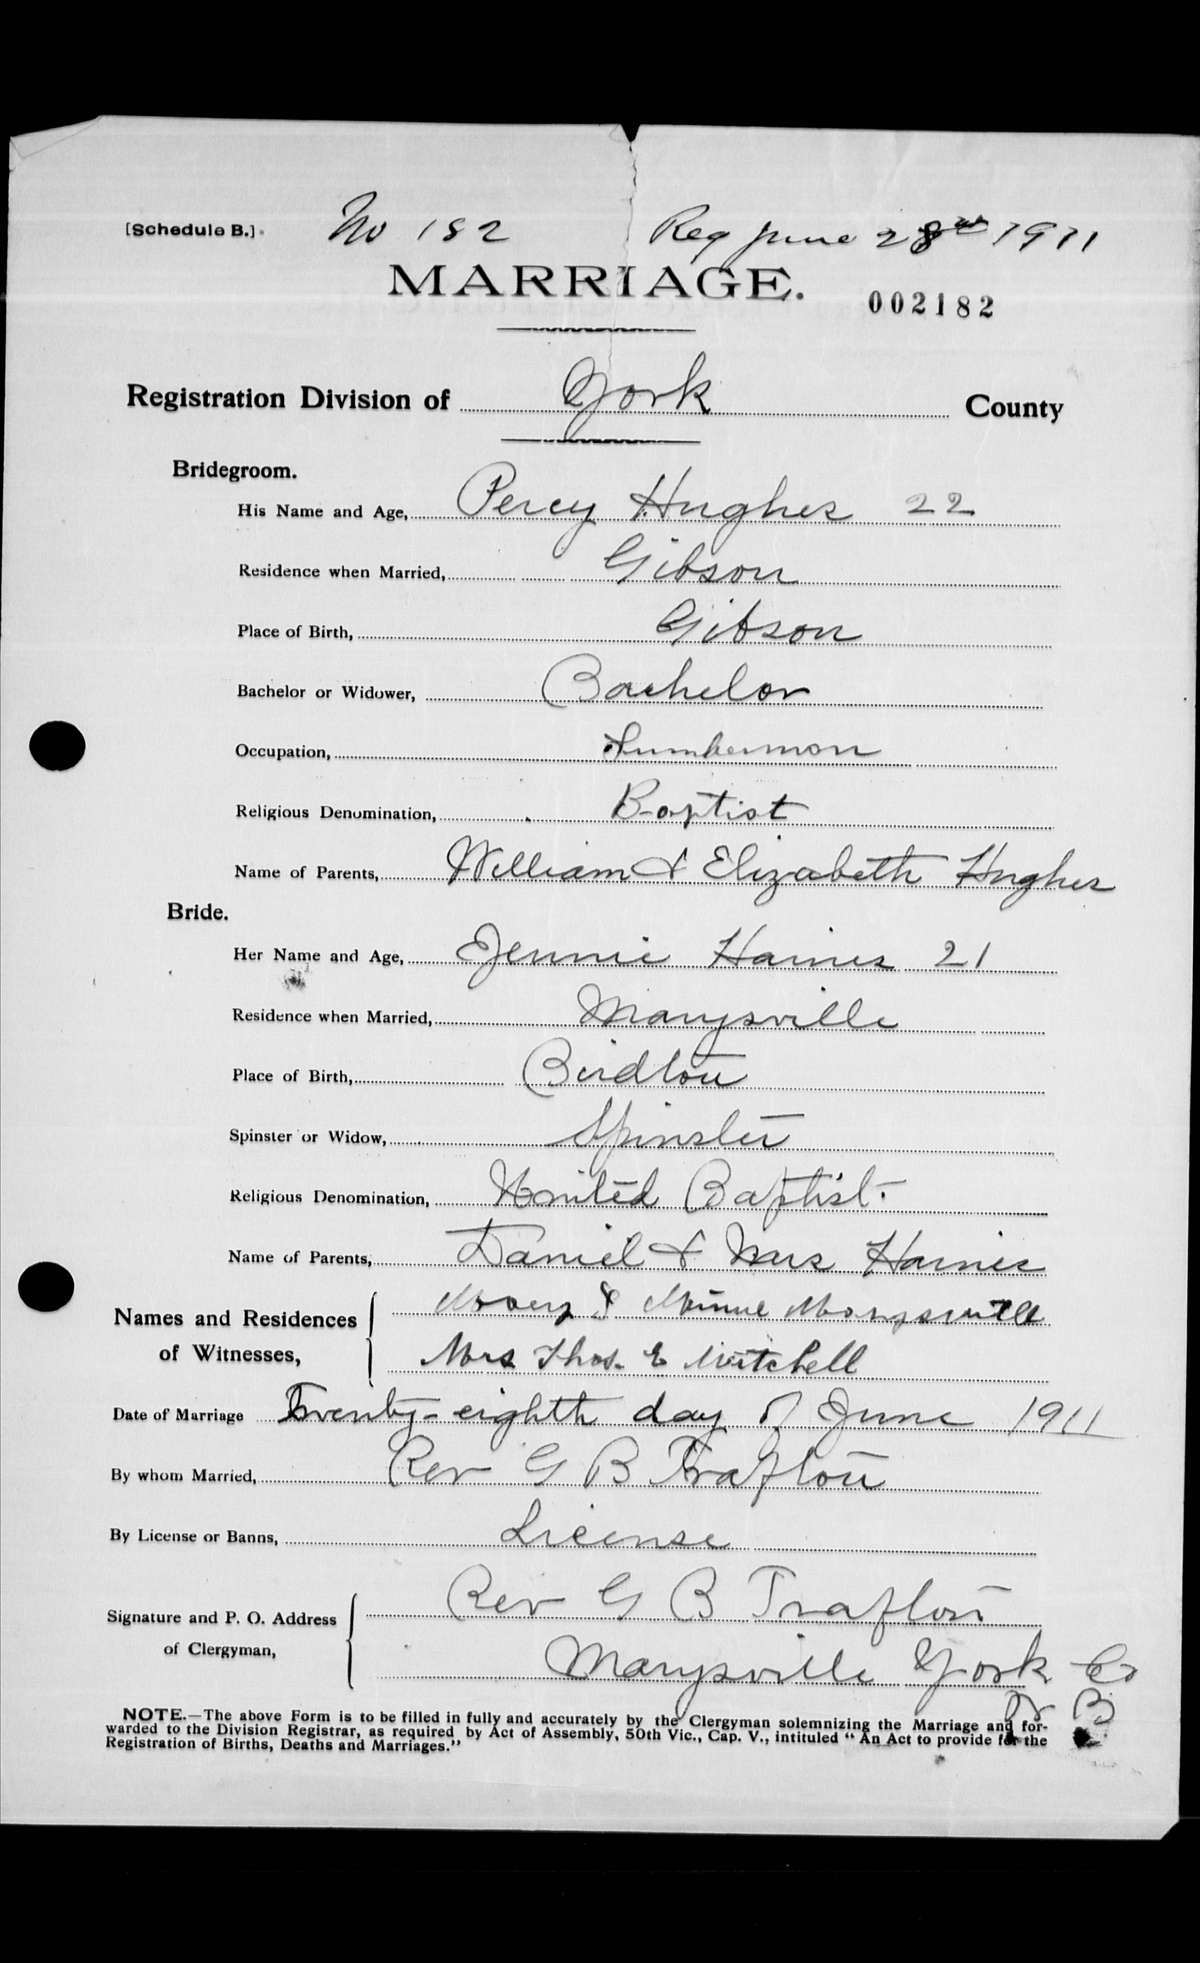 [Schedule B.] No 182 Reg June 28th 1911
MARRIAGE.
002182
Registration Division of York County
Bridegroom.
His Name and Age, Percy Hughes 22
Residence when Married, Gibson
Place of Birth, Gibson
Bachelor or Widower, Bachelor
Occupation, Lumberman
Religious Denomination, Baptist
Name of Parents, William & Elizabeth Hughes
Bride.
Her Name and Age, Jennie Haines 21
Residence when Married, Marysville
Place of Birth, Birdton
Spinster or Widow, Spinster
Religious Denomination, United Baptist
Name of Parents, Daniel & Mrs Haines
Names and Residences Marysville
of Witnesses, Mrs Thos. E Mitchell
Date of Marriage Twenty-eighth day of June 1911
By whom Married, Rev G B Trafton
By License or Banns, License
Signature and P. O. Address Rev G B Trafton
of Clergyman, Marysville York Co
N B
NOTE.—The above Form is to be filled in fully and accurately by the Clergyman solemnizing the Marriage and for-
warded to the Division Registrar, as required by Act of Assembly, 50th Vic., Cap. V., intituled "An Act to provide for the
Registration of Births, Deaths and Marriages."